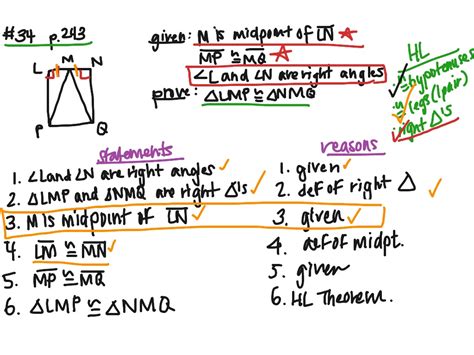 #34 p.243
given: M is midpoint of LN
MP ≅ MQ
∠L and ∠N are right angles
prove: △LMP ≅ △NMQ
HL
≅ hypotenuses
≅ legs (1 pair)
right △'s
L M N
P Q
statements
reasons
1. ∠L and ∠N are right angles
1. given
2. △LMP and △NMQ are right △'s
2. def of right △
3. M is midpoint of LN
3. given
4. LM ≅ MN
4. def of midpt.
5. MP ≅ MQ
5. given
6. △LMP ≅ △NMQ
6. HL Theorem.